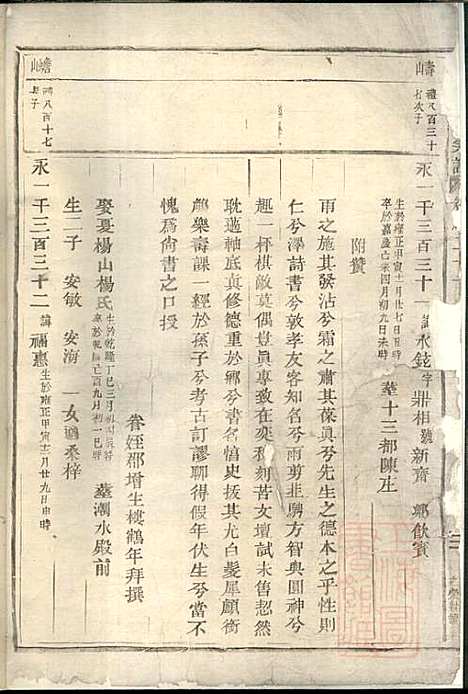 疇 禮八百三十
七次子
永一千三百三十一 諱永鉉字鼎相號新齋 鄉飲賓
生於雍正甲寅十一月廿七日丑時
卒於嘉慶己未四月初九日未時 葬十三都陳左
附贊
雨之施其發沾兮霜之肅其葆眞兮先生之德本之乎性則
仁兮澤詩書兮敦孝友客知名兮雨剪韭驕方智與圓神兮
趣一杯棋敵莫偶豈眞專致在奕秋刻苦女壇試未售恝然
耽遊神底眞修德重於鄉兮書名慎史拔其尤白髮犀顱衡
齡樂壽課一經於孫子兮考古訂謬聊得假年伏生兮當不
愧爲尙書之口授
眷姪郡增生樓鶴年拜撰
娶夏楊山楊氏 生於乾隆丁巳三月初 日辰時
卒於乾隆 亡酉九月初一巳時 葬潮水殿前
生二子 安敏 安海 一女適桑梓
嶦 禮八百十七
長子
永一千三百三十二 諱福惠 生於雍正甲寅十二月廿九日申時